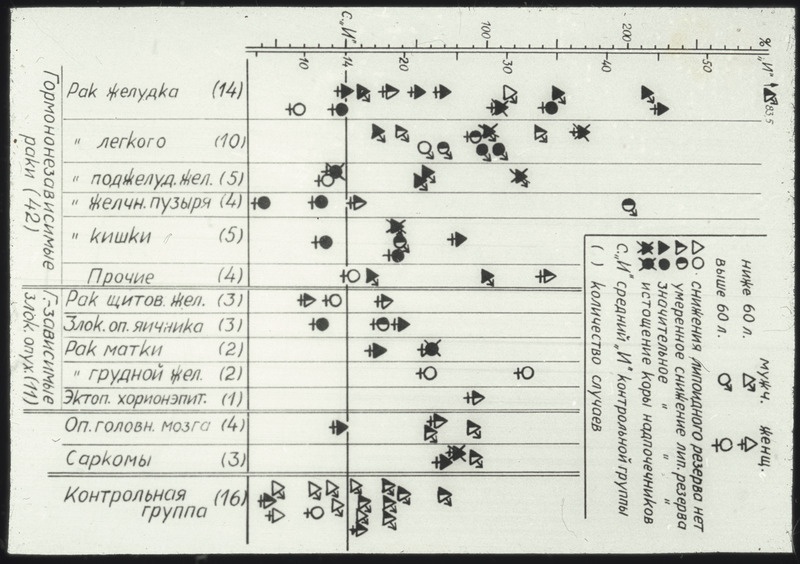 С„И"
100
200
% „И"
10
14
20
30
40
50
83.5
Гормононезависимые
раки (42)
Рак желудка (14)
" легкого (10)
" поджелуд. жел. (5)
" Желчн. пузыря (4)
" кишки (5)
Прочие (4)
Г-зависимые
злок. опух. (11)
Рак щитов. жел. (3)
Злок. оп. яичника (3)
Рак матки (2)
" грудной жел. (2)
Эктоп. хорионэпит. (1)
Оп. головн. мозга (4)
Саркомы (3)
Контрольная
группа (16)
муж. женщ.
ниже 60 л.
выше 60 л.
снижения липоидного резерва нет
умеренное снижение лип. резерва
значительное " " "
истощение коры надпочечников
С„И" средний „И" контрольной группы
( ) количество случаев